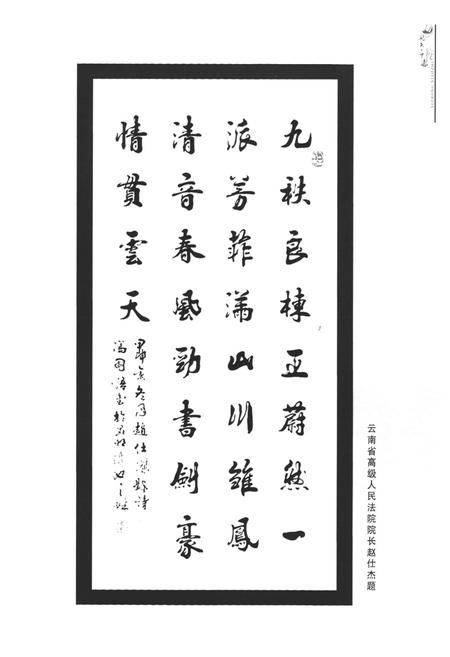 九秩良棟正蔚然一
派芳菲滿山川雏鳳
清音春風勁書劍豪
情貫雲天
趙仕傑
云南省高级人民法院院长赵仕杰题